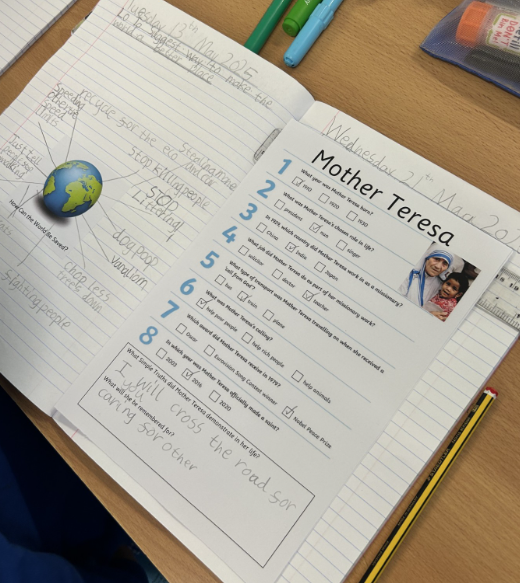 Tuesday 13th May 2025
Lo To suggest way to make the
world a better place
Speeding
other the
speed
limits
recycle for the eco
Stop killing people
STOP
Littering!
dog poop
vandlism
chop less
trees down
Stabbing people
Just tell
people stop
How Can the World Be Saved?
Wednesday 21st May 202
Mother Teresa
1 What year was Mother Teresa born?
1910 1920 1930
2 What was Mother Teresa's chosen role in life?
president nun singer
3 In 1929, which country did Mother Teresa work in as a missionary?
China India Japan
4 What job did Mother Teresa do as part of her missionary work?
solicitor doctor teacher
5 What type of transport was Mother Teresa travelling on when she received a
'call from God'?
bus train plane
6 What was Mother Teresa's calling?
help poor people help rich people help animals
7 Which award did Mother Teresa receive in 1979?
Oscar Eurovision Song Contest winner Nobel Peace Prize
8 In which year was Mother Teresa officially made a saint?
2003 2016 2020
What Simple Truths did Mother Teresa demonstrate in her life?
I will cross the road for
you
What will she be remembered for?
caring for other